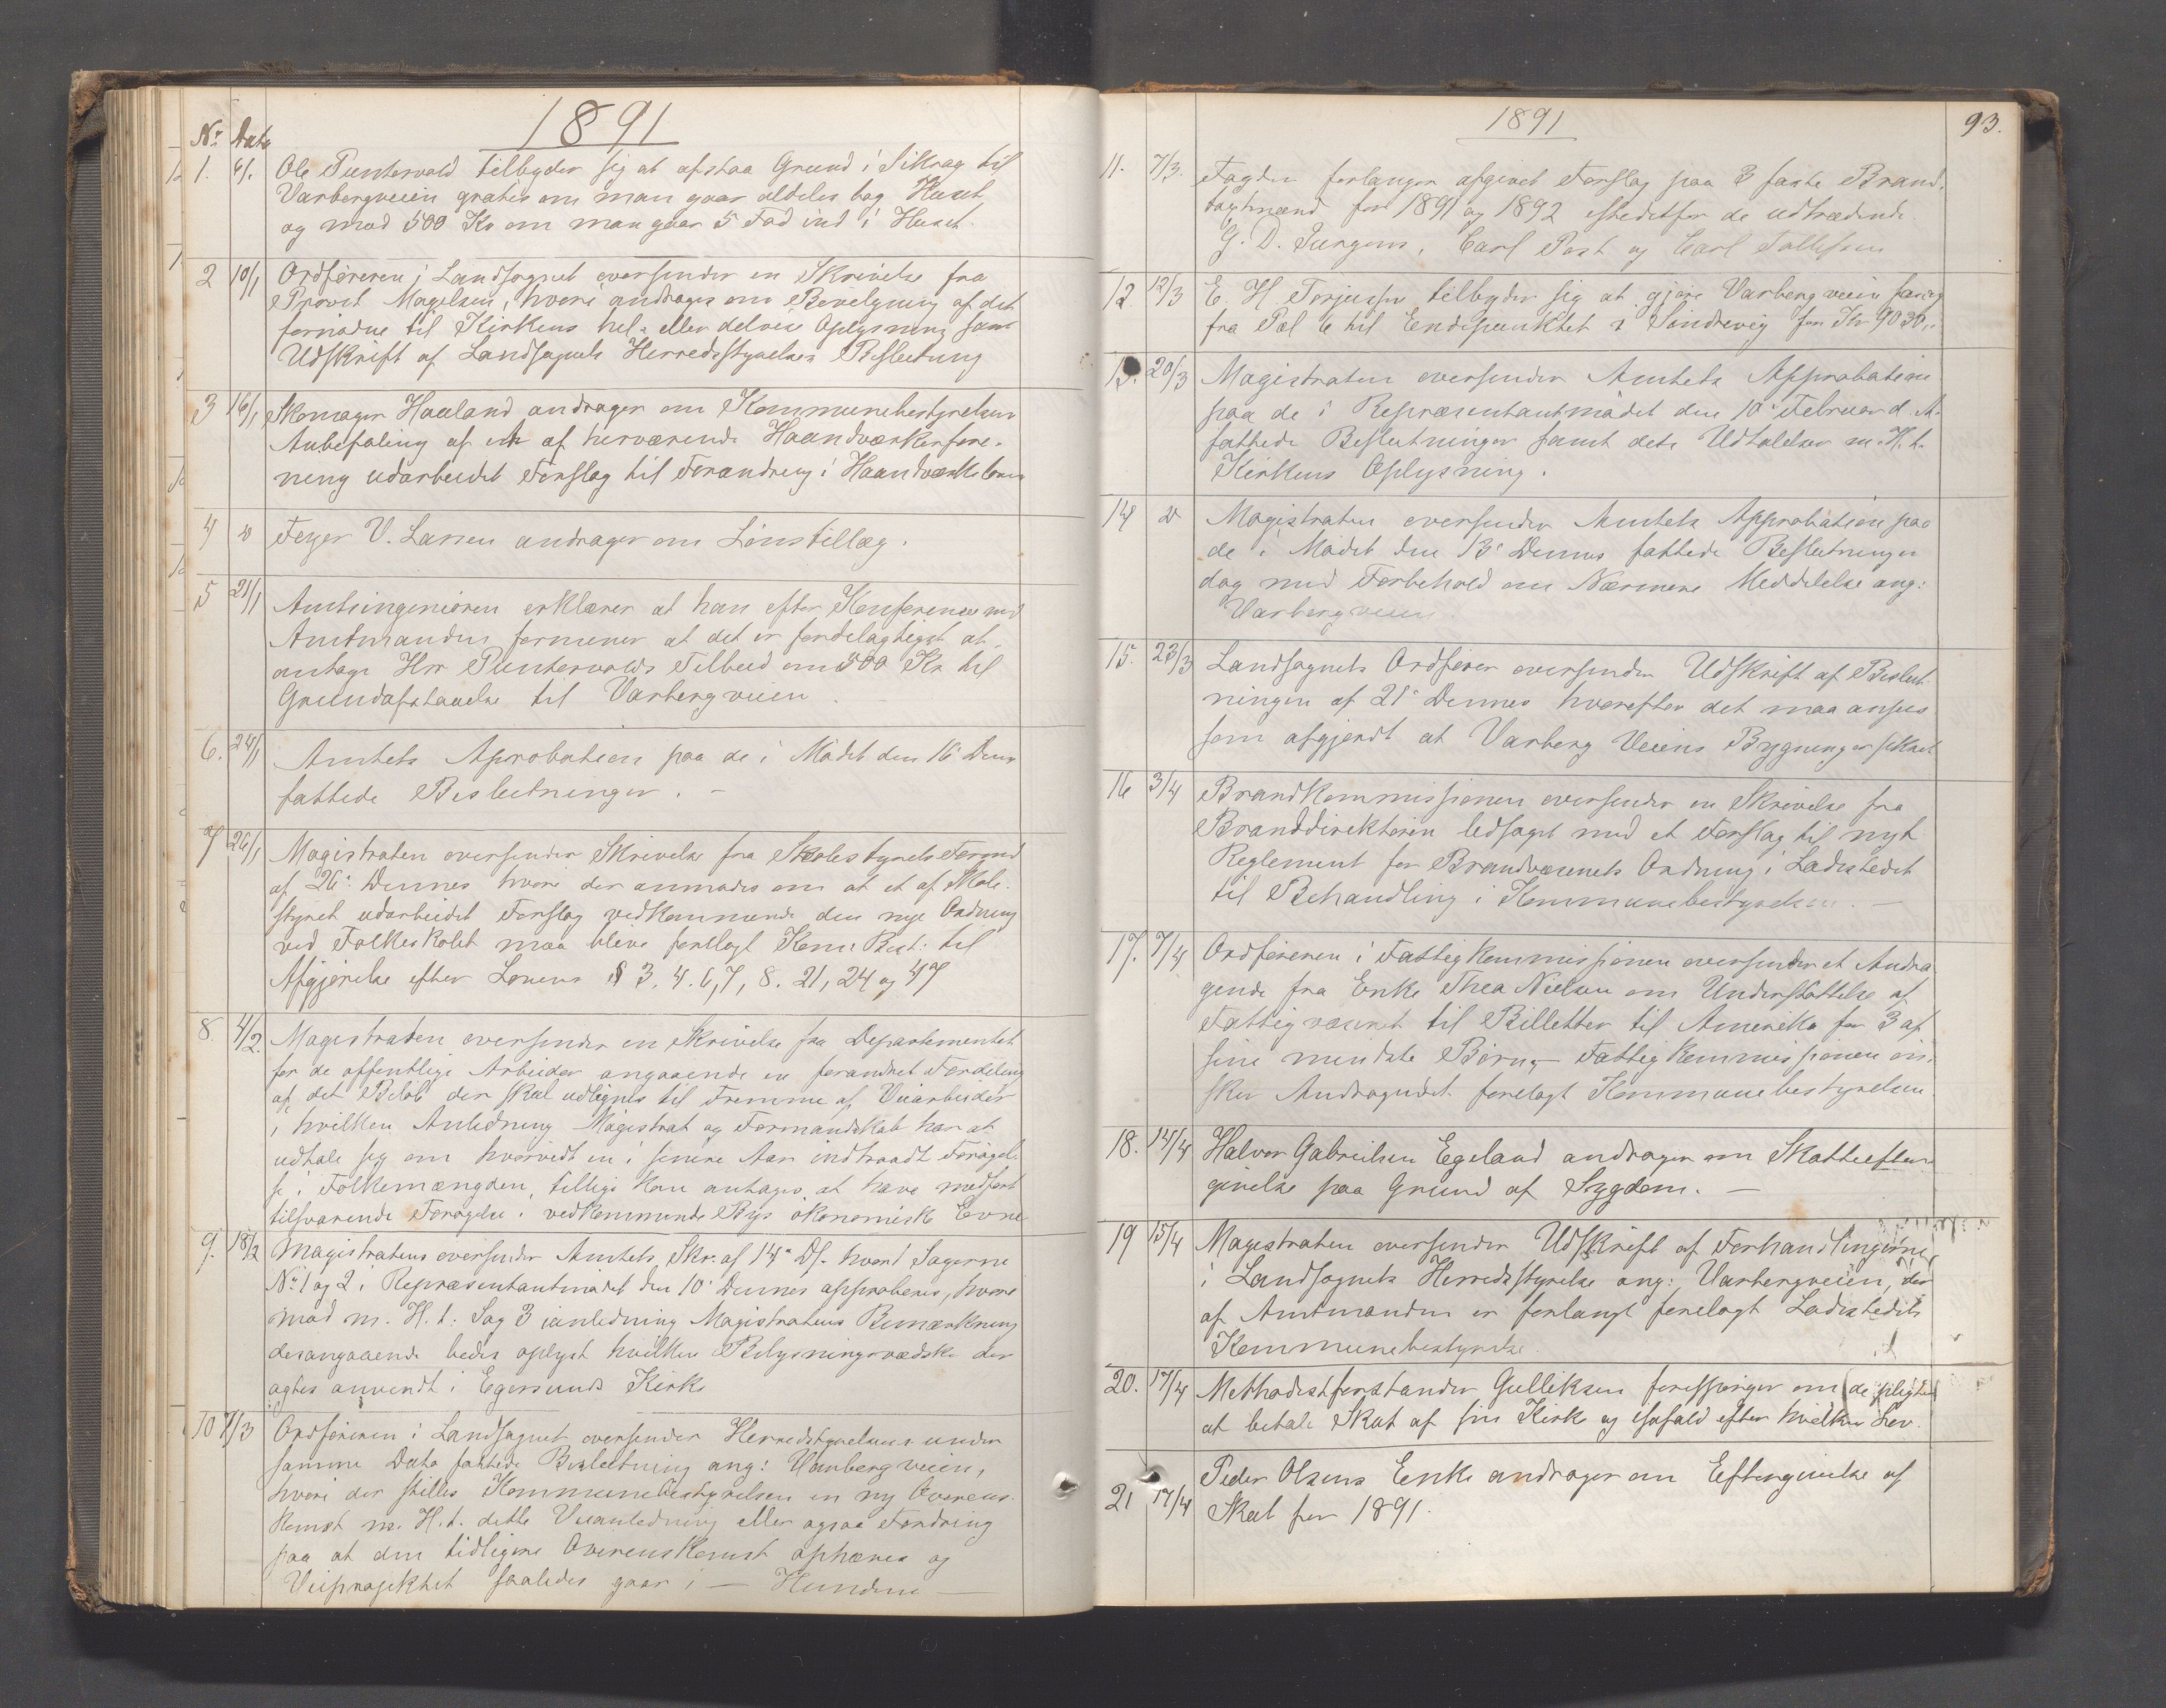 1891
No Dato
1. 6/1. Ole Puntervold tilbyder sig at afstaa Grund i Sikvag til
Varbergveien gratis om man gaar aldeles bag Huset
og mod 500 Kr om man gaar 5 Fod ind i Huset.
2 10/1 Ordføreren i Landsognet oversender en Skrivelse fra
Provst Magelsen, hvori andrages om Bevilgning af det
fornødne til Kirkens hel- eller delvise Oplysning samt
Udskrift af Landsognets Herredsstyrelses Beslutning
3 16/1 Skomager Haaland andrager om Kommunebestyrelsens
Anbefaling af et af herværende Haandværkerfore-
ning udarbeidet Forslag til Forandring i Haandværksloven
4 " Feger V. Larsen andrager om Lønstillæg.
5 21/1 Amtsingeniøren erklærer at han efter Konference med
Amtmanden formener at det er fordelagtigst at
antage Hrr Puntervolds Tilbud om 500 Kr til
Grundafstaaelse til Varbergveien.
6. 24/1 Amtets Aprobation paa de i Mødet den 16' Dens
fattede Beslutninger. -
7 26/1 Magistraten oversender Skrivelse fra Skolestyrets Formd
af 26' Dennes hvori der anmodes om at et af Skole-
styret udarbeidet Forslag vedkommende den nye Ordning
ved Folkeskolet maa blive forelagt Kom: Best: til
Afgjørelse efter Lovens § 3, 4. 6, 7, 8. 21, 24 og 47
8. 4/2. Magistraten oversender en Skrivelse fra Departementet
for de offentlige Arbeider angaaende en forandret Fordeling
af det Beløb der skal udlignes til Fremme af Veiarbeider
i hvilken Anledning Magistrat og Formandskab har at
udtale sig om hvorvidt en i senere Aar indtraadt Forøgel-
se i Folkemængden, tillige kan antages at have medført
tilsvarende Forøgelse i vedkommende Bys økonomiske Evne
9. 18/2 Magistraten oversender Amtets Skr. af 14' Ds. hvori Sagerne
No 1 og 2 i Repræsentantmødet den 10' Dennes approberes, hvori
mod m. H. t: Sag 3 ianledning Magistratens Bemærkning
desangaaende bedes oplyst hvilken Belysningsvædske der
agtes anvendt i Egersunds Kirke
10 7/3 Ordføreren i Landsognet oversender Herredstyrelsens under
samme Dato fattede Beslutning ang: Varbergveien,
hvori der stilles Kommunebestyrelsen en ny Overens-
komst m. H. t. dette Veianledning eller ogsaa Fordring
paa at den tidligere Overenskomst ophæves og
Veiprojektet saaledes gaar i — Hundene —
1891
93.
11. 7/3. Fogden forlanger afgivet Forslag paa 3 faste Brand-
tagtmænd for 1891 og 1892 istedetfor de udtrædende
G. D. Jurgens, Carl Post og Carl Tollefsen
12. 12/3 E. H. Terjesen tilbyder sig at gjøre Varbergveien færdig
fra Pæl 6 til Endepunktet i Sindrevig for Kr 9030,"
13. 20/3 Magistraten oversender Amtets Approbation
paa de i Repræsentantmødet den 10' Februar d. A.
fattede Beslutninger samt dets Udtalelser m. H. t.
Kirkens Oplysning.
14 " Magistraten oversender Amtets Approbation paa
de i Mødet den 13' Dennes fattede Beslutninger
dog med Forbehold om Nærmere Meddelelse ang:
Varbergveien
15. 23/3 Landsognets Ordfører oversender Udskrift af Beslut-
ningen af 21' Dennes hvorefter det maa ansees
som afgjordt at Varberg Veiens Bygninger sikret
16 3/4 Brandkommissionen oversender en Skrivelse fra
Branddirektøren ledsaget med et Forslag til nyt
Reglement for Brandvæsenets Ordning i Ladestedet
til Behandling i Kommunebestyrelsen. —
17. 7/4 Ordføreren i Fattigkommissionen oversender et Andra-
gende fra Enke Thea Nielsen om Understøttelse af
Fattigvæsenet til Billetter til Amerika for 3 af
sine mindste Børn, - Fattigkommissionen øn-
sker Andragendet forelagt Kommunebestyrelsen
18. 14/4 Halvor Gabrielsen Egeland andrager om Skatteefter-
givelse paa Grund af Sygdom. —
19 15/4 Magistraten oversender Udskrift af Forhandlingerne
i Landsognets Herredsstyrelse ang: Varbergveien, der
af Amtmanden er forlangt forelagt Ladestedets
Kommunebestyrelse.
20. 17/4 Methodistforstander Gulliksen forespørger om de pligter
at betale Skat af sin Kirke og isafald efter hvilken Lov.
21 17/4 Peder Olsens Enke andrager om Eftergivelse af
Skat for 1891.